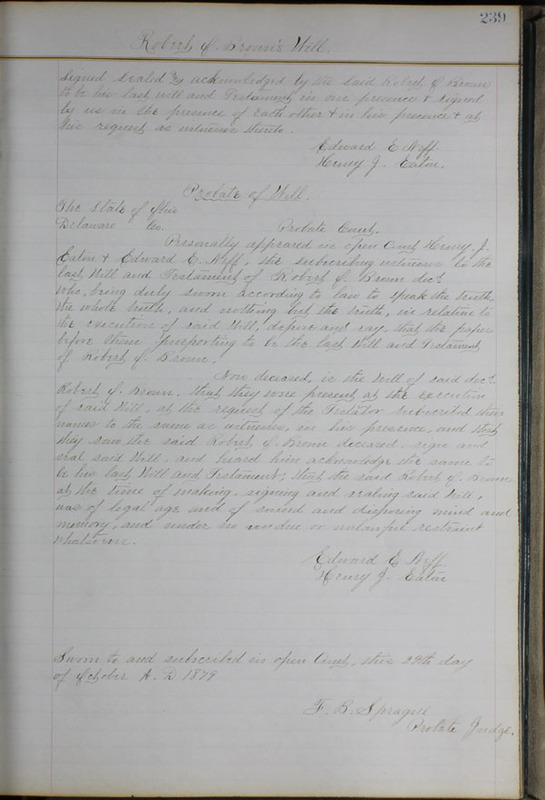 239
Robert J. Brown's Will.
Signed Sealed & acknowledged by the said Robert J. Brown
to be his last will and Testament, in our presence & signed
by us in the presence of each other & in his presence & at
his request as witnesses thereto.
Edward E. Neff.
Henry J. Eaton.
Probate of Will.
The State of Ohio
Delaware Co. Probate Court.
Personally appeared in open Court Henry J.
Eaton & Edward E. Neff, the subscribing witnesses to the
last Will and Testament of Robert J. Brown decd.
who, being duly sworn according to law to speak the truth,
the whole truth, and nothing but the truth, in relation to
the execution of said Will, depose and say that the paper
before them purporting to be the last Will and Testament
of Robert J. Brown.
Now deceased, is the Will of said decd.
Robert J. Brown. that they were present at the execution
of said Will, at the request of the Testator subscribed their
names to the same as witnesses, in his presence, and that
they saw the said Robert J. Brown deceased. sign and
seal said Will. and heard him acknowledge the same to
be his last Will and Testament; that the said Robert J. Brown
at the time of making. signing and sealing said Will,
was of legal age and of sound and disposing mind and
memory, and under no undue or unlawful restraint
whatsoever.
Edward E. Neff
Henry J. Eaton
Sworn to and subscribed in open Court, this 29th day
of October A. D 1879
F. B. Sprague
Probate Judge.